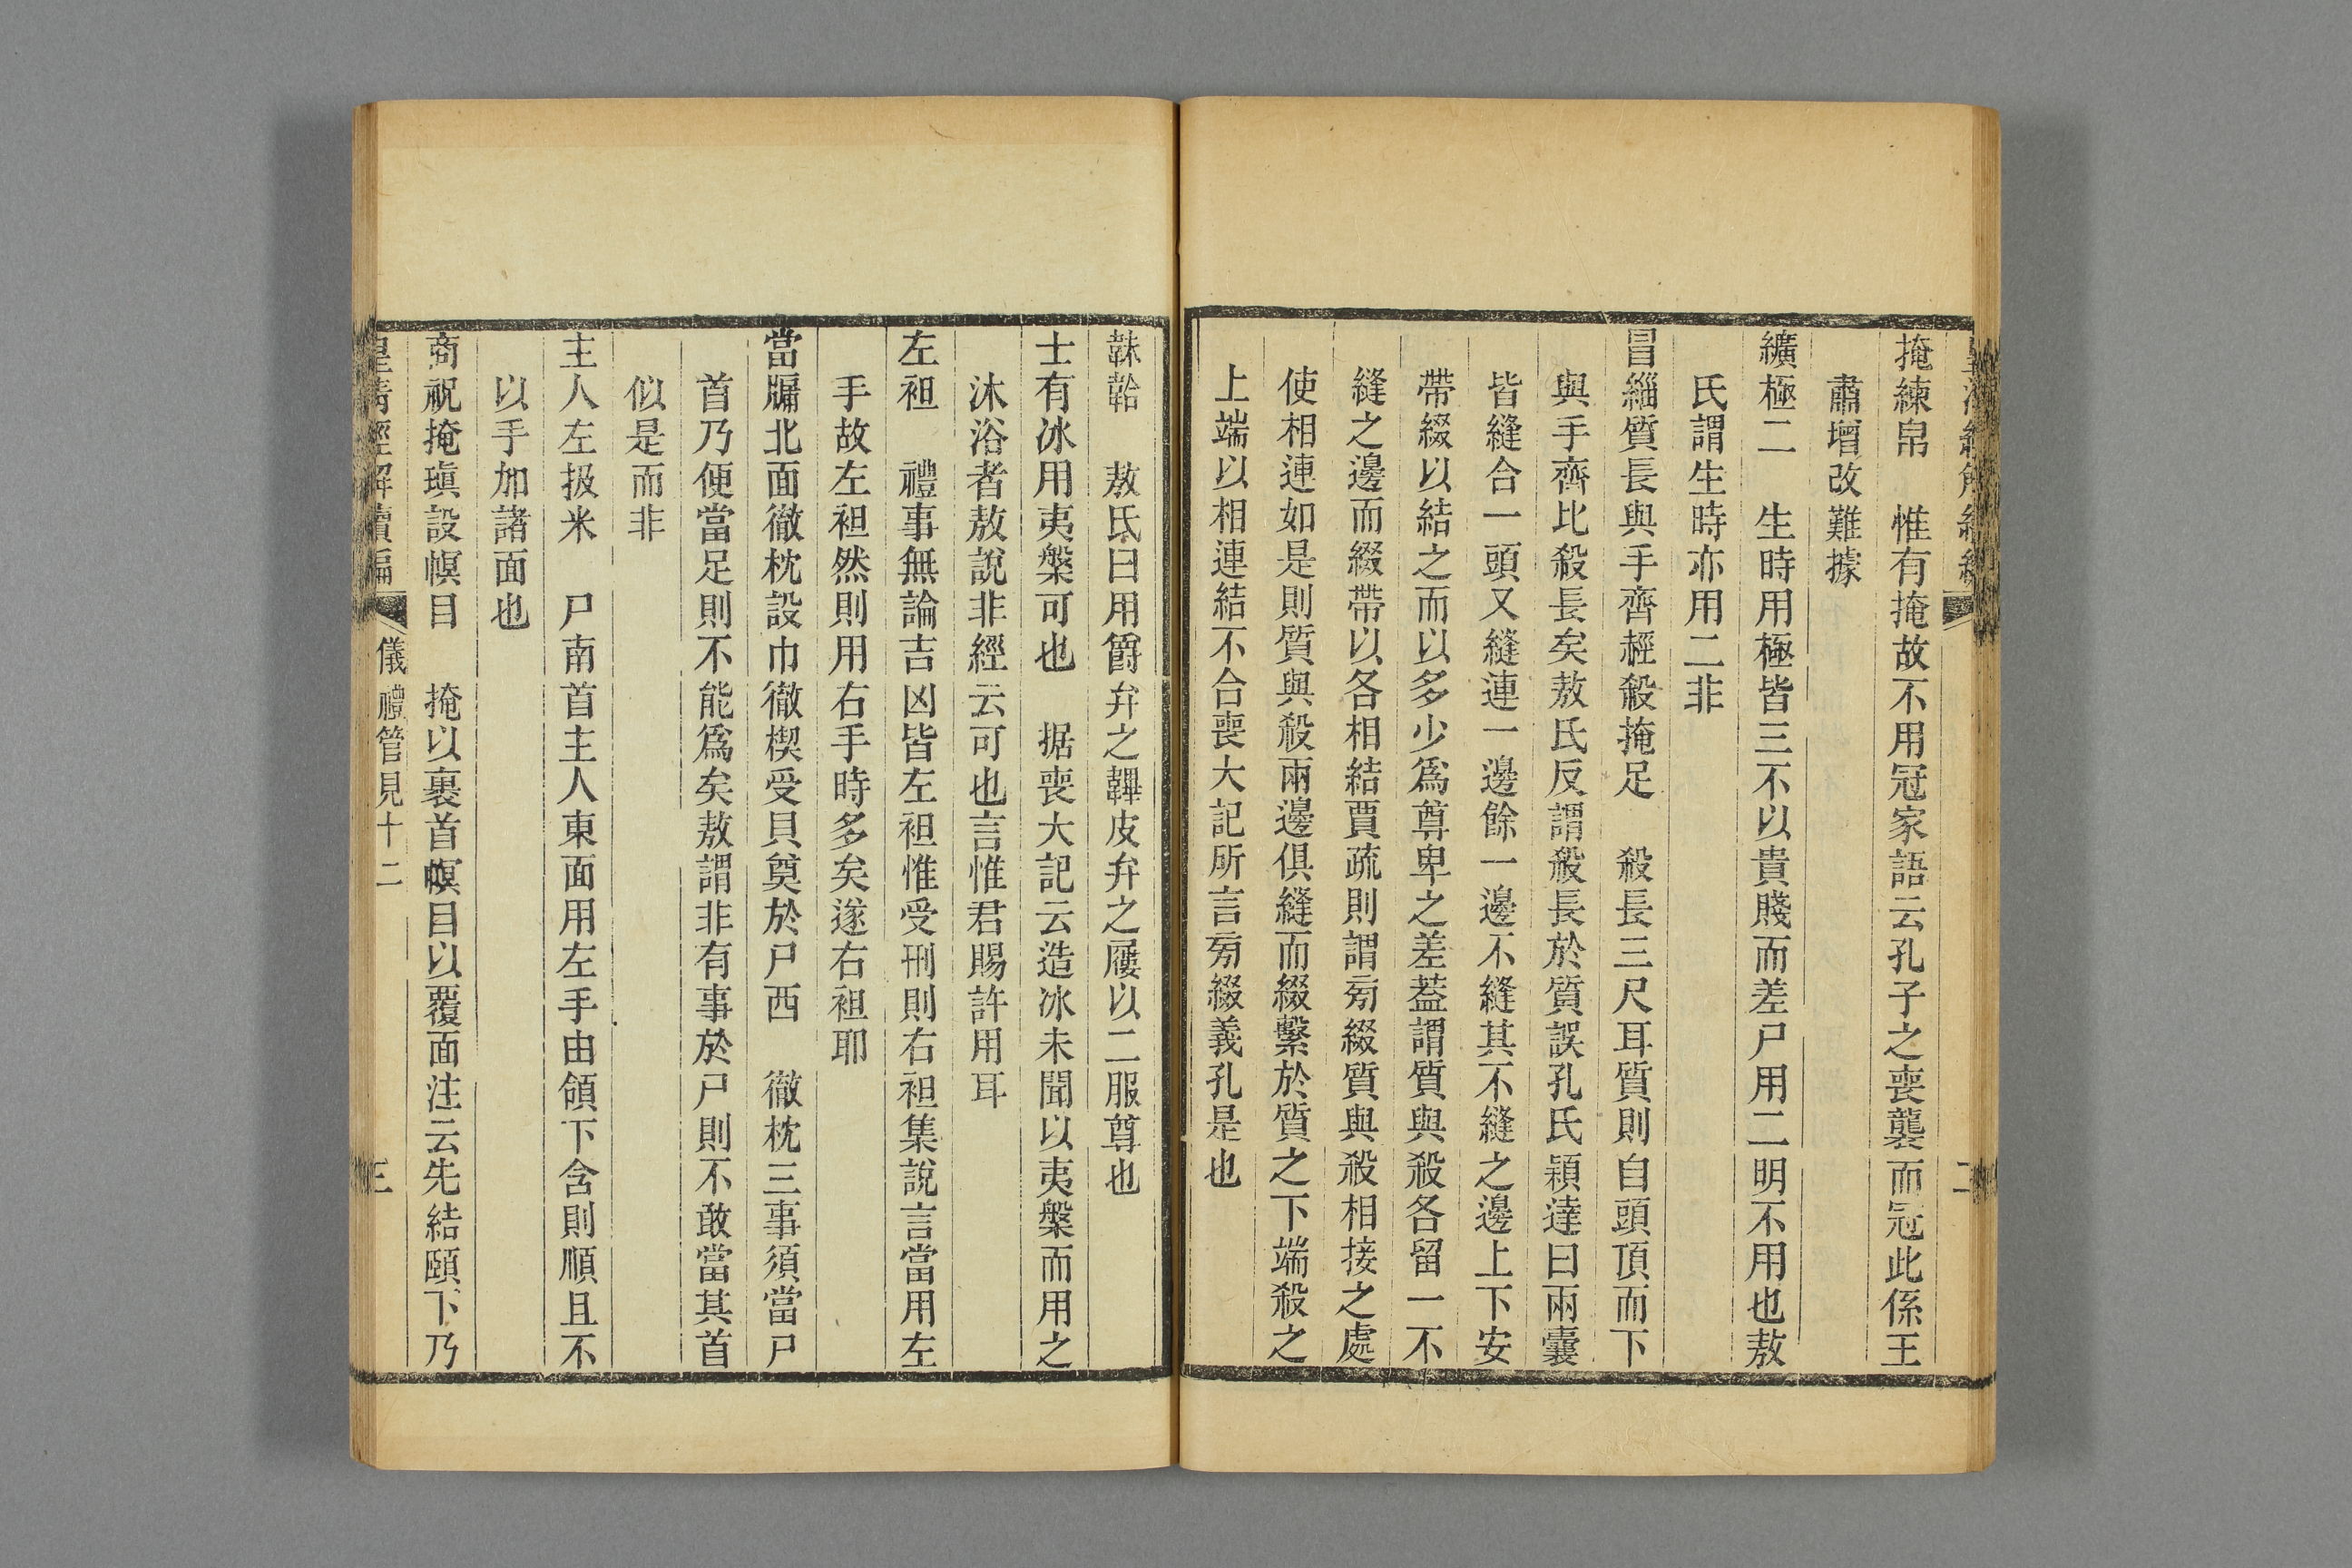 掩練帛　惟有掩故不用冠家語云孔子之喪襲而冠此係王
肅增改難據
纊極二　生時用極皆三不以貴賤而差尸用二明不用也敖
氏謂生時亦用二非
冒緇質長與手齊經殺掩足　殺長三尺耳質則自頭頂而下
與手齊比殺長矣敖氏反謂殺長於質誤孔氏穎達曰兩囊
皆縫合一頭又縫連一邊餘一邊不縫其不縫之邊上下安
帶綴以結之而以多少爲尊卑之差葢謂質與殺各留一不
縫之邊而綴帶以各相結賈疏則謂㫄綴質與殺相接之處
使相連如是則質與殺兩邊俱縫而綴繫於質之下端殺之
上端以相連結不合喪大記所言㫄綴義孔是也
韎韐　敖氏曰用爵弁之韠皮弁之屨以二服尊也
士有冰用夷槃可也　据喪大記云造冰未聞以夷槃而用之
沐浴者敖說非經云可也言惟君賜許用耳
左袒　禮事無論吉凶皆左袒惟受刑則右袒集說言當用左
手故左袒然則用右手時多矣遂右袒耶
當牖北面徹枕設巾徹楔受貝奠於尸西　徹枕三事須當尸
首乃便當足則不能爲矣敖謂非有事於尸則不敢當其首
似是而非
主人左扱米　尸南首主人東面用左手由頷下含則順且不
以手加諸面也
商祝掩瑱設幎目　掩以裹首幎目以覆面注云先結頤下乃
皇清經解續編　儀禮管見十二　三